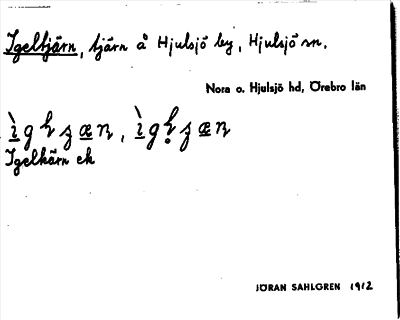 Igeltjärn, tjärn å Hjulsjö by, Hjulsjö sn.
Nora o. Hjulsjö hd, Örebro län
Igelkärn ek
JÖRAN SAHLGREN 1912